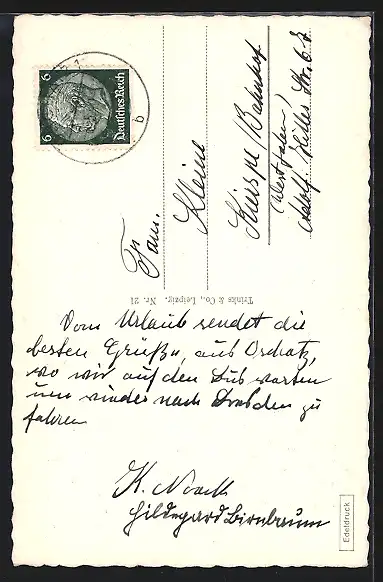 6 Deutsches Reich 6
b
Fam.
Kleine
Kierspe/Bahnhof
(Westfalen)
Adolf Hitler Str. 67
Trinks & Co., Leipzig. Nr. 21
Vom Urlaub sendet die
besten Grüße, aus Oschatz,
wo wir auf den Bus warten
um wieder nach Dresden zu
fahren
K. Noack
Hildegard Birnbaum
Edeldruck